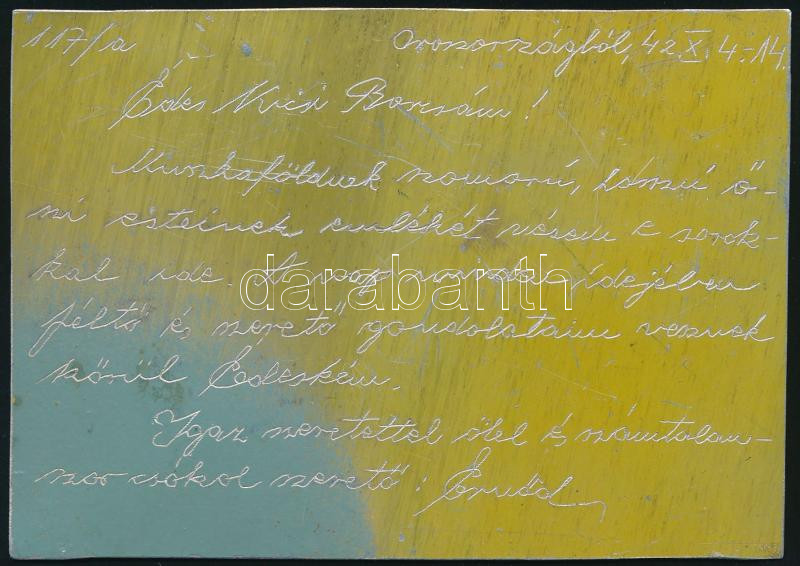 117/a Oroszországból, 42 X. 4.-14.
Édes Kicsi Borcsám!
Munkaföldnek szomorú, hosszú ő-
szi esteinek emlékét vésem e sorok-
kal ide. A nap minden idejében
féltő és szerető gondolataim vesznek
körül Édeském.
Igaz szeretettel ölel és számtalan-
szor csókol szerető: Ernőd
darabanth